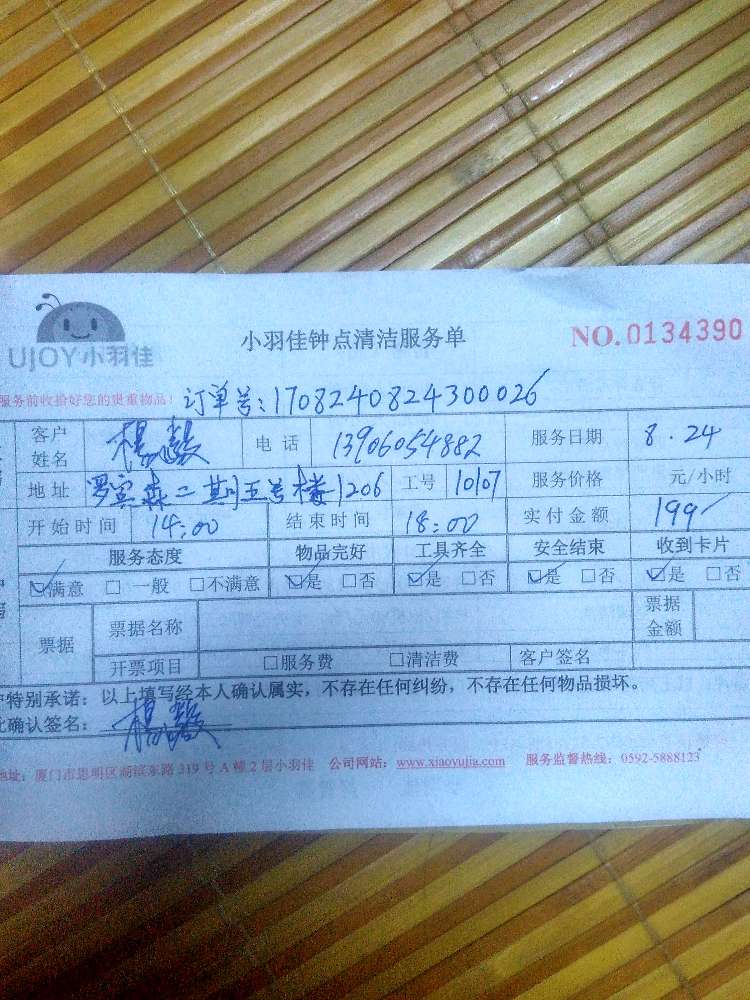 UJOY小羽佳
小羽佳钟点清洁服务单
NO.0134390
服务前收拾好您的贵重物品！ 订单号：1708240824300026
客户姓名 杨毅 电话 13906054882 服务日期 8.24
地址 罗宾森二期五号楼1206 工号 10107 服务价格 元/小时
开始时间 14:00 结束时间 18:00 实付金额 199
服务态度 物品完好 工具齐全 安全结束 收到卡片
☑满意 □一般 □不满意 ☑是 □否 ☑是 □否 ☑是 □否 ☑是 □否
票据 票据名称 票据金额
开票项目 □服务费 □清洁费 客户签名
特别承诺：以上填写经本人确认属实，不存在任何纠纷，不存在任何物品损坏。
确认签名：杨毅
地址：厦门市思明区湖滨东路319号A幢2层小羽佳 公司网站：www.xiaoyujia.com 服务监督热线：0592-5888123